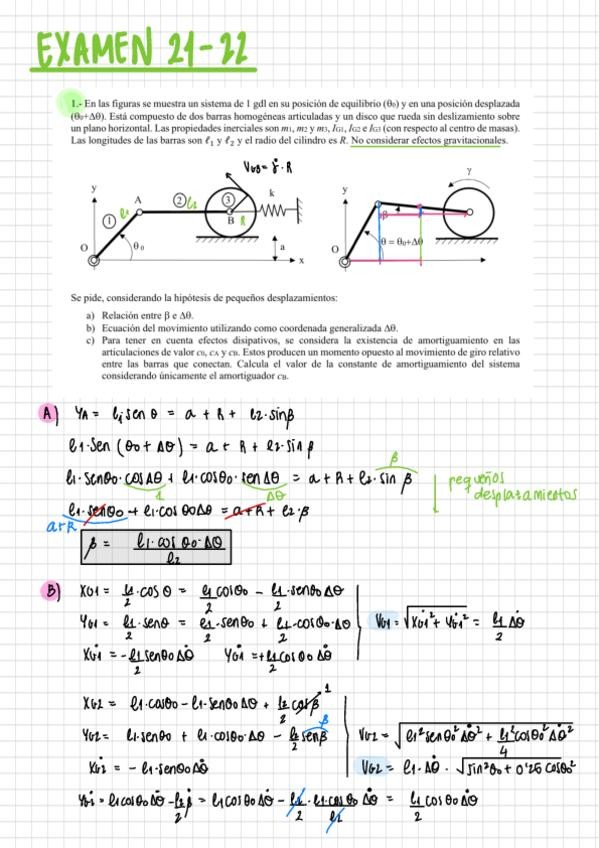 EXAMEN 21-22
1.- En las figuras se muestra un sistema de 1 gdl en su posición de equilibrio (θ₀) y en una posición desplazada
(θ₀+Δθ). Está compuesto de dos barras homogéneas articuladas y un disco que rueda sin deslizamiento sobre
un plano horizontal. Las propiedades inerciales son m₁, m₂ y m₃, I_G1, I_G2 e I_G3 (con respecto al centro de masas).
Las longitudes de las barras son ℓ₁ y ℓ₂ y el radio del cilindro es R. No considerar efectos gravitacionales.
VG3 = γ̇ · R
y A ② l2 ③ k
① l1 B R
O θ₀ a x
y γ
β
O θ = θ₀+Δθ
Se pide, considerando la hipótesis de pequeños desplazamientos:
a) Relación entre β e Δθ.
b) Ecuación del movimiento utilizando como coordenada generalizada Δθ.
c) Para tener en cuenta efectos disipativos, se considera la existencia de amortiguamiento en las
articulaciones de valor c₀, c_A y c_B. Estos producen un momento opuesto al movimiento de giro relativo
entre las barras que conectan. Calcula el valor de la constante de amortiguamiento del sistema
considerando únicamente el amortiguador c_B.
A) YA = l1 sen θ = a + R + l2·sinβ
l1·sen (θ0 + Δθ) = a + R + l2·sin β
l1·senθ0·cosΔθ + l1·cosθ0·senΔθ = a + R + l2·sin β
1 Δθ β pequeños desplazamientos
l1·senθ0 + l1·cos θ0Δθ = a+R + l2·β
a+R
β = l1·cos θ0·Δθ / l2
B) XG1 = l1/2·cos θ = l1/2 cosθ0 - l1/2·senθ0 Δθ
YG1 = l1/2·senθ = l1/2·senθ0 + l1/2·cosθ0·Δθ
VG1 = √(ẊG1² + ẎG1²) = l1/2 Δθ̇
ẊG1 = -l1/2 senθ0 Δθ̇ ẎG1 = +l1/2 cosθ0 Δθ̇
XG2 = l1·cosθ0 - l1·senθ0 Δθ + l2/2 cosβ 1
YG2 = l1·senθ0 + l1·cosθ0·Δθ - l2/2 senβ β
VG2 = √(l1² senθ0² Δθ̇² + l1² cosθ0² Δθ̇² / 4)
ẊG2 = - l1·senθ0 Δθ̇
VG2 = l1·Δθ̇ · √(sin²θ0 + 0'25 cosθ0²)
ẎG2 = l1 cosθ0 Δθ̇ - l2/2 β̇ = l1 cosθ0 Δθ̇ - l2/2 · l1·cos θ0/l2 Δθ̇ = l1/2 cosθ0 Δθ̇